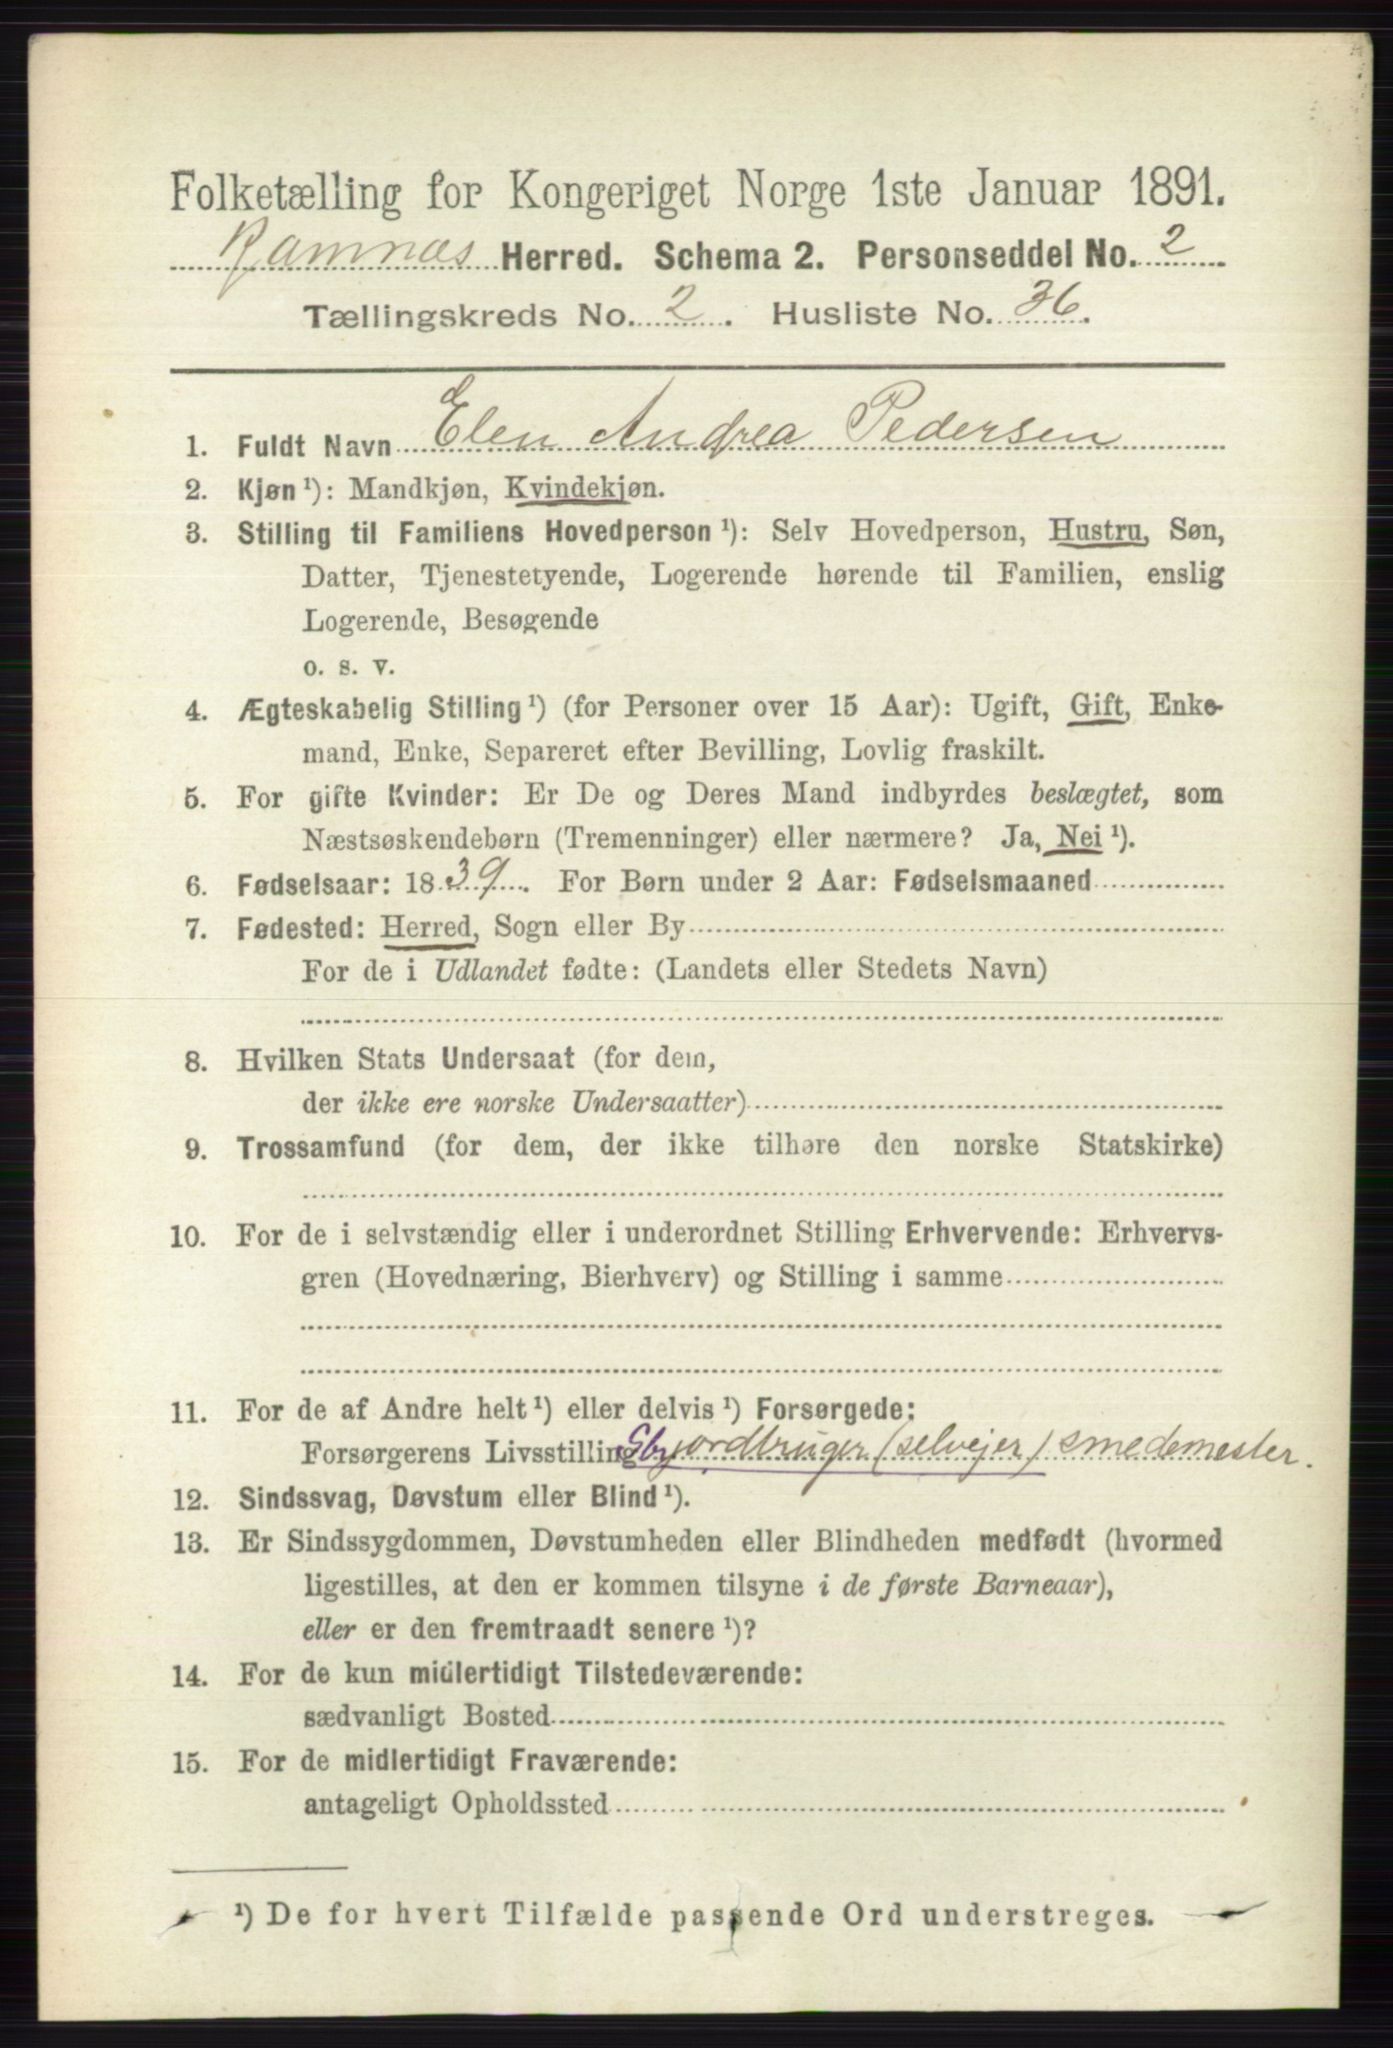 Folketælling for Kongeriget Norge 1ste Januar 1891.
Ramnæs Herred. Schema 2. Personseddel No. 2
Tællingskreds No. 2. Husliste No. 36.
1. Fuldt Navn Elen Andrea Pedersen
2. Kjøn ¹): Mandkjøn, Kvindekjøn.
3. Stilling til Familiens Hovedperson ¹): Selv Hovedperson, Hustru, Søn,
Datter, Tjenestetyende, Logerende hørende til Familien, enslig
Logerende, Besøgende
o. s. v.
4. Ægteskabelig Stilling ¹) (for Personer over 15 Aar): Ugift, Gift, Enke-
mand, Enke, Separeret efter Bevilling, Lovlig fraskilt.
5. For gifte Kvinder: Er De og Deres Mand indbyrdes beslægtet, som
Næstsøskendebørn (Tremenninger) eller nærmere? Ja, Nei ¹).
6. Fødselsaar: 1839. For Børn under 2 Aar: Fødselsmaaned
7. Fødested: Herred, Sogn eller By
For de i Udlandet fødte: (Landets eller Stedets Navn)
8. Hvilken Stats Undersaat (for dem,
der ikke ere norske Undersaatter)
9. Trossamfund (for dem, der ikke tilhøre den norske Statskirke)
10. For de i selvstændig eller i underordnet Stilling Erhvervende: Erhvervs-
gren (Hovednæring, Bierhverv) og Stilling i samme
11. For de af Andre helt ¹) eller delvis ¹) Forsørgede:
Forsørgerens Livsstilling Gbr jordbruger (selvejer) smedemester.
12. Sindssvag, Døvstum eller Blind ¹).
13. Er Sindssygdommen, Døvstumheden eller Blindheden medfødt (hvormed
ligestilles, at den er kommen tilsyne i de første Barneaar),
eller er den fremtraadt senere ¹)?
14. For de kun midlertidigt Tilstedeværende:
sædvanligt Bosted
15. For de midlertidigt Fraværende:
antageligt Opholdssted
¹) De for hvert Tilfælde passende Ord understreges.